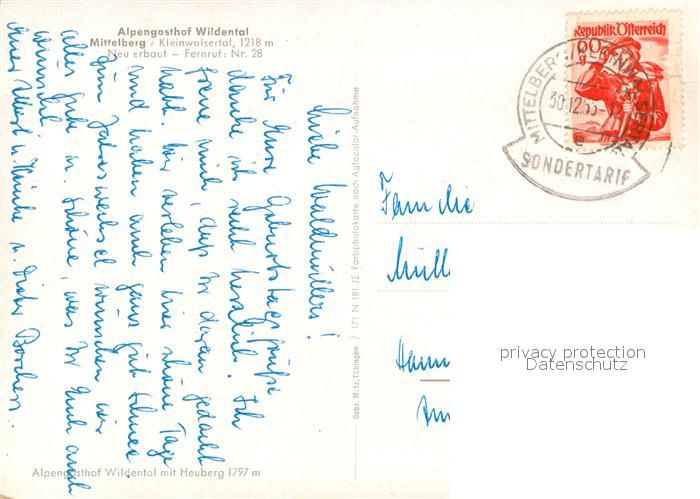 Alpengasthof Wildental
Mittelberg / Kleinwalsertal, 1218 m
Neu erbaut – Fernruf: Nr. 28
Liebe Waldmüllers!
Für Eure Geburtstagsgrüße
danke ich recht herzlich. Ich
freue mich, daß Ihr daran gedacht
habt. Wir verleben hier schöne Tage
und haben auch ganz gut Schnee
Zum Jahreswechsel wünschen wir
alles Gute u. Schöne, was Ihr Euch auch
wünscht.
Eure u. u.
Alpengasthof Wildental mit Heuberg 1797 m
Gebr. Metz, Tübingen / 171 N 181 JE Farbphotokarte nach Agfacolor-Aufnahme
Republik Österreich
60
g
MITTELBERG/KLEINWALSERTAL
30.12.55
e
SONDERTARIF
Familie
Müll
Hann
privacy protection
Datenschutz